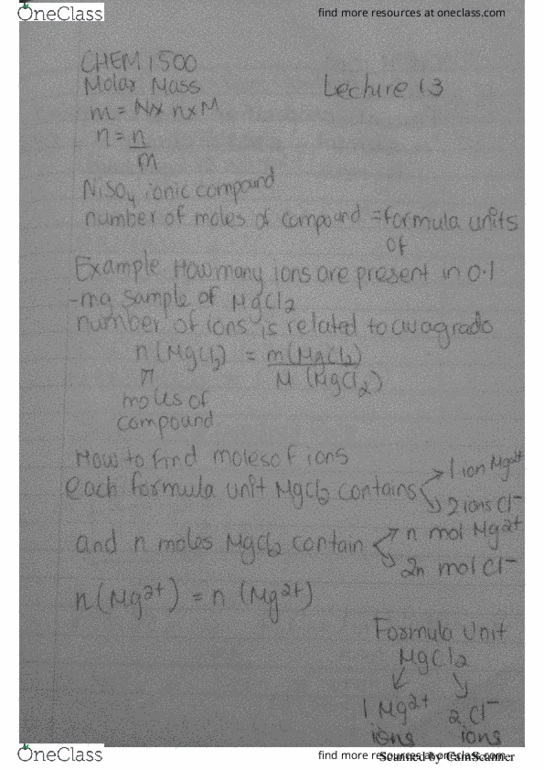 OneClass
find more resources at oneclass.com
CHEM 1500
Molar Mass
Lecture 13
m = N x n x M
n = n
m
NiSO4 ionic compound
number of moles of compound = formula units
of
Example How many ions are present in 0.1
-mg sample of MgCl2
number of ions is related to avagrado
n (MgCl2) = m(MgCl2)
M (MgCl2)
n
moles of
compound
How to find moles of ions
each formula unit MgCl2 contains
1 ion Mg2+
2 ions Cl-
and n moles MgCl2 contain
n mol Mg2+
2n mol Cl-
n(Mg2+) = n (Mg2+)
Formula Unit
MgCl2
1 Mg2+ 2 Cl-
ions ions
OneClass
find more resources at oneclass.com
Scanned by CamScanner